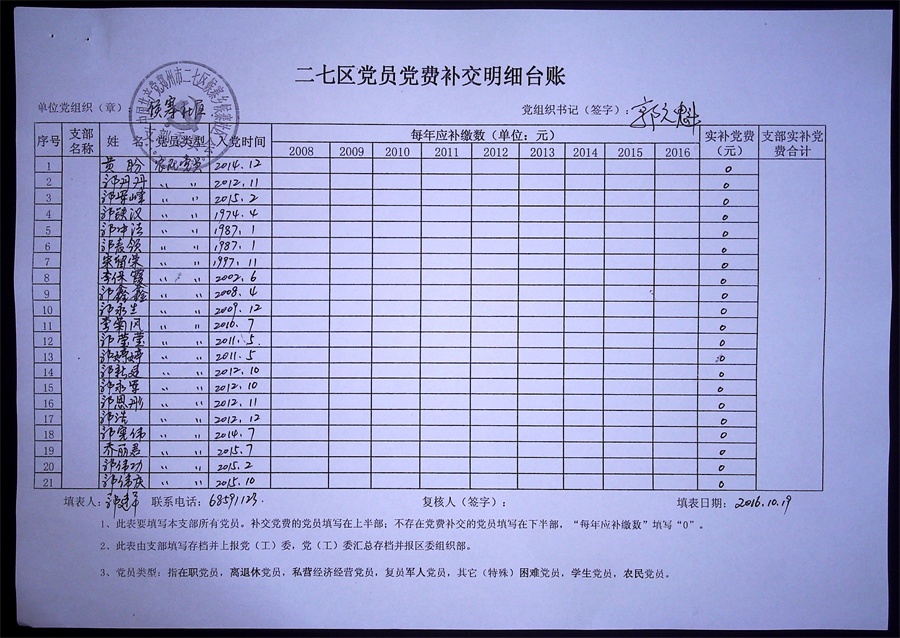 二七区党员党费补交明细台账
单位党组织（章）：侯寨社区 党组织书记（签字）：
序号 支部名称 姓 名 党员类型 入党时间 每年应补缴数（单位：元） 实补党费（元） 支部实补党费合计
2008 2009 2010 2011 2012 2013 2014 2015 2016
1 黄盼 农民党员 2014.12 0
2 祁丹丹 〃 〃 2012.11 0
3 〃 〃 2015.2 0
4 〃 〃 1974.4 0
5 〃 〃 1987.1 0
6 〃 〃 1987.1 0
7 宋留荣 〃 〃 1997.11 0
8 李保霞 〃 〃 2002.6 0
9 祁鑫鑫 〃 〃 2008.4 0
10 祁永生 〃 〃 2009.12 0
11 李菊风 〃 〃 2016.7 0
12 祁莹莹 〃 〃 2011.5 0
13 祁婷婷 〃 〃 2011.5 0
14 〃 〃 2012.10 0
15 祁永军 〃 〃 2012.10 0
16 祁恩彤 〃 〃 2012.11 0
17 祁浩 〃 〃 2012.12 0
18 祁宪伟 〃 〃 2014.7 0
19 乔丽君 〃 〃 2015.7 0
20 祁伟功 〃 〃 2015.2 0
21 祁伟庆 〃 〃 2015.10 0
填表人： 联系电话：68591123. 复核人（签字）： 填表日期：2016.10.19
1、此表要填写本支部所有党员。补交党费的党员填写在上半部；不存在党费补交的党员填写在下半部，“每年应补缴数”填写“0”。
2、此表由支部填写存档并上报党（工）委，党（工）委汇总存档并报区委组织部。
3、党员类型：指在职党员，离退休党员，私营经济经营党员，复员军人党员，其它（特殊）困难党员，学生党员，农民党员。